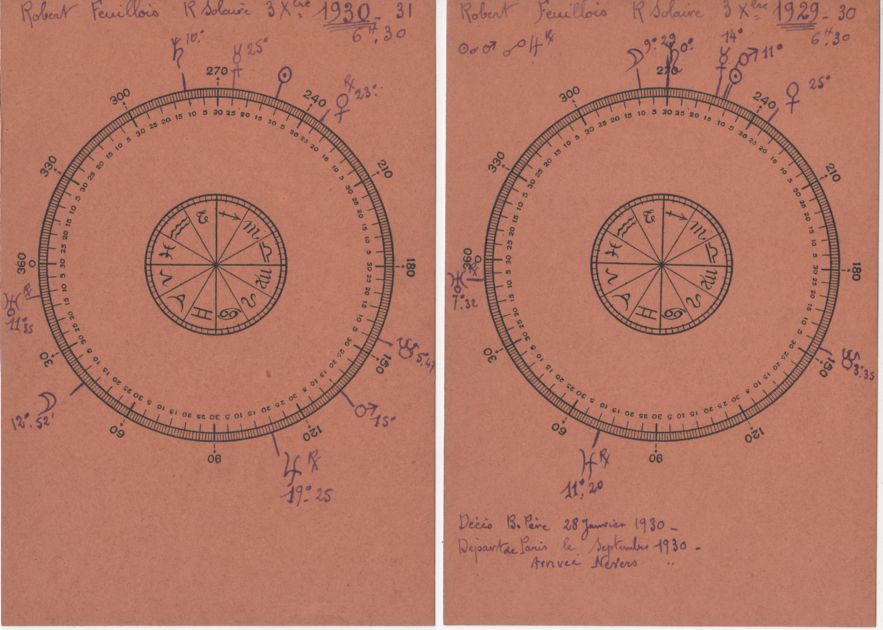 Robert Feuillois R Solaire 3 Xbre 1930_31
6H,30
♄ 10°
☿ 25°
☉
♀ ℞ 23°
270
300
240
330
210
360
0
180
30
150
60
120
90
♅ ℞
11°35
♆ 5,47
☽
12°.52'
♂ 15°
♃ ℞
19°.25
Robert Feuillois R Solaire 3 Xbre 1929_30
6H,30
☉☌♂ ☍♃℞
☽ 9°.29
♄ 0°
14°
☿
☉
♂ 11°
♀ 25°
270
300
240
330
210
360
0
180
30
150
60
120
90
♅ ℞
7°.32
♆ 3°.35
♃ ℞
11°.20
Décès B. Père 28 Janvier 1930_
Départ de Paris le Septembre 1930_
Arrivée Nevers "